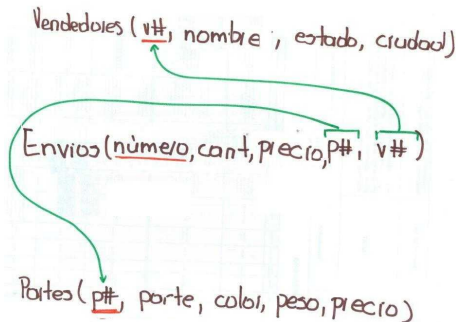 Vendedores (v#, nombre, estado, ciudad)
Envios (número, cant, precio, p#, v#)
Partes (p#, parte, color, peso, precio)